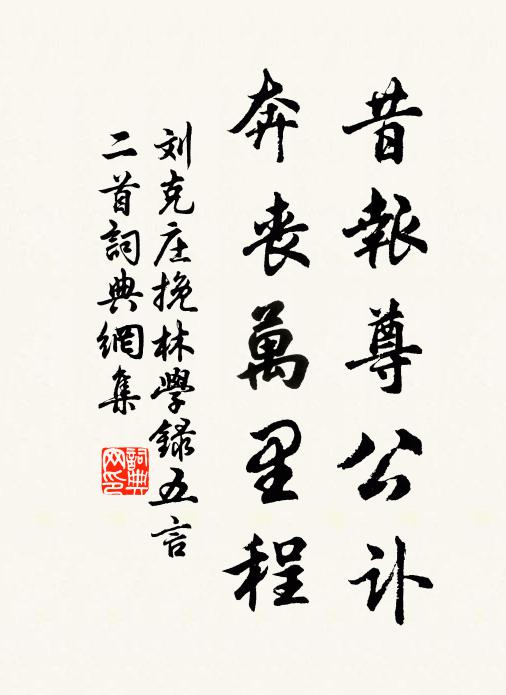 昔報尊公讣
奔喪萬里程
刘克庄挽林學録五言
二首詞典網集
詞典网印